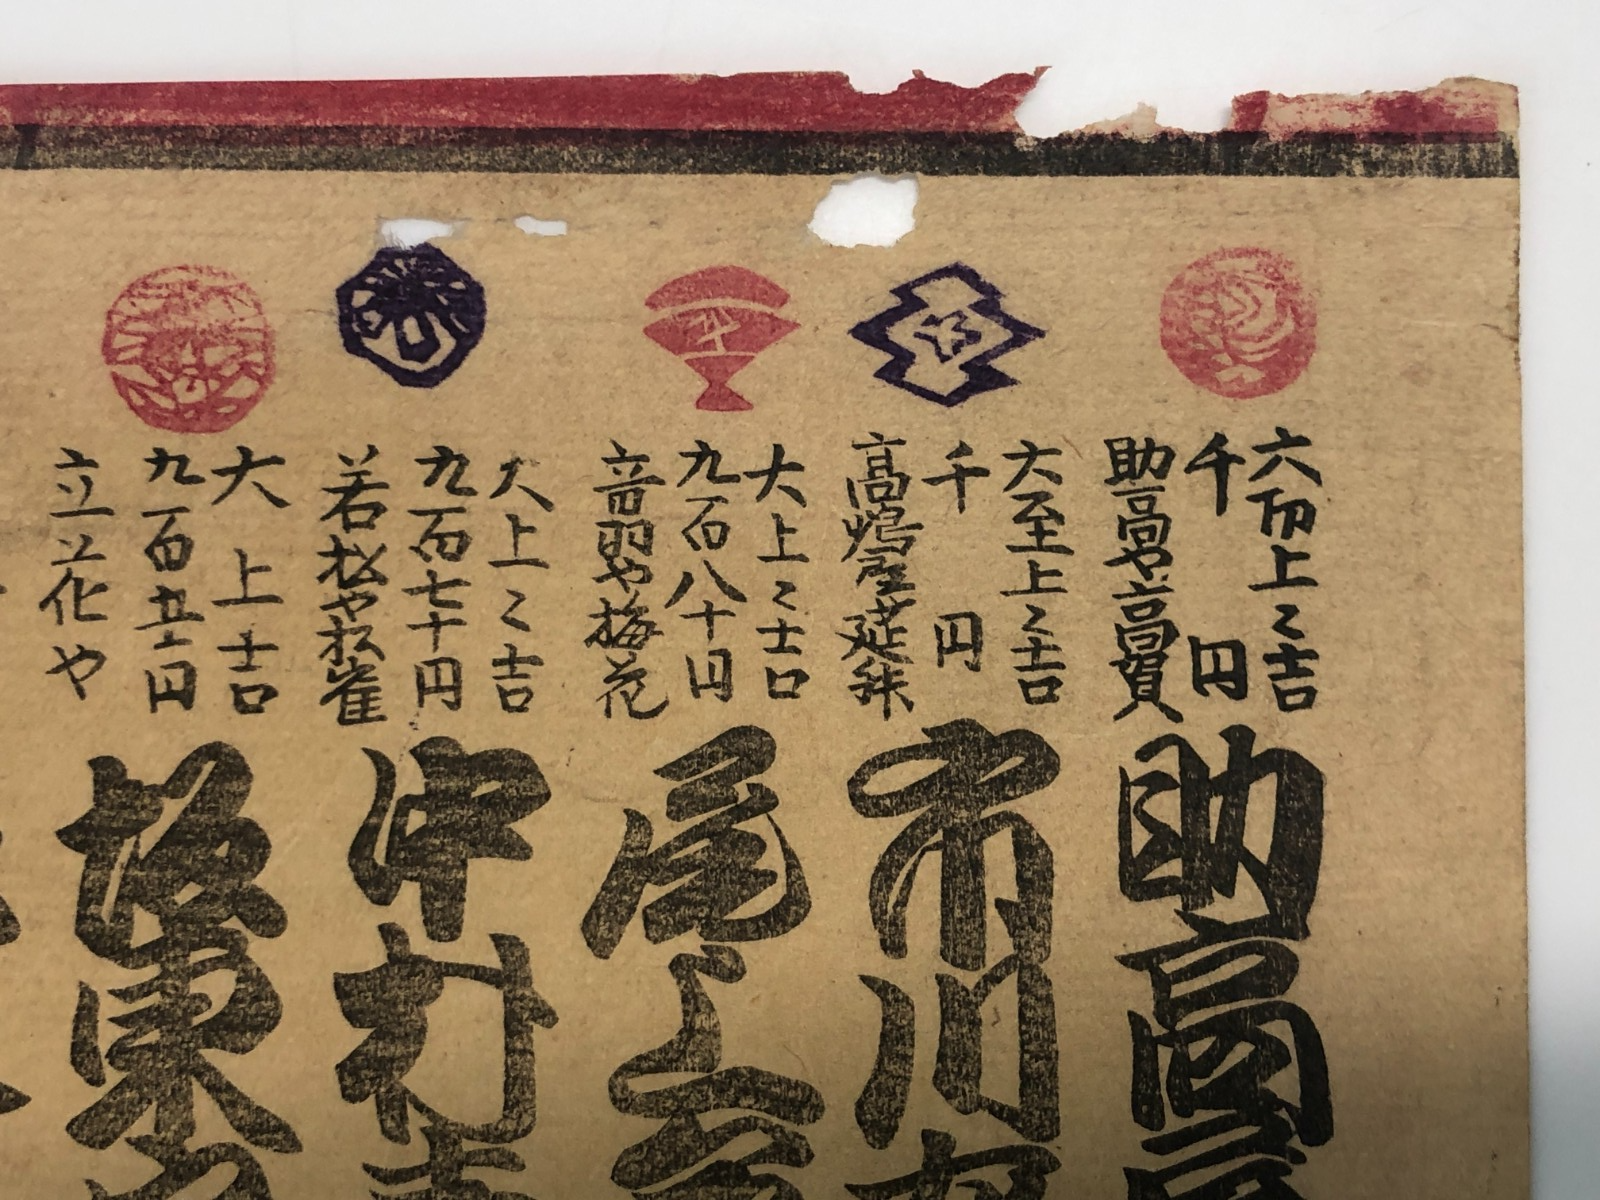 大至上上吉
千円
助高や高賀
助高
大至上〻吉
千円
高嶋屋延升
市川
大上〻吉
九百八十円
音羽や梅花
尾上
大上〻吉
九百七十円
若松や松雀
中村
大上吉
九百五十円
立花や
坂東